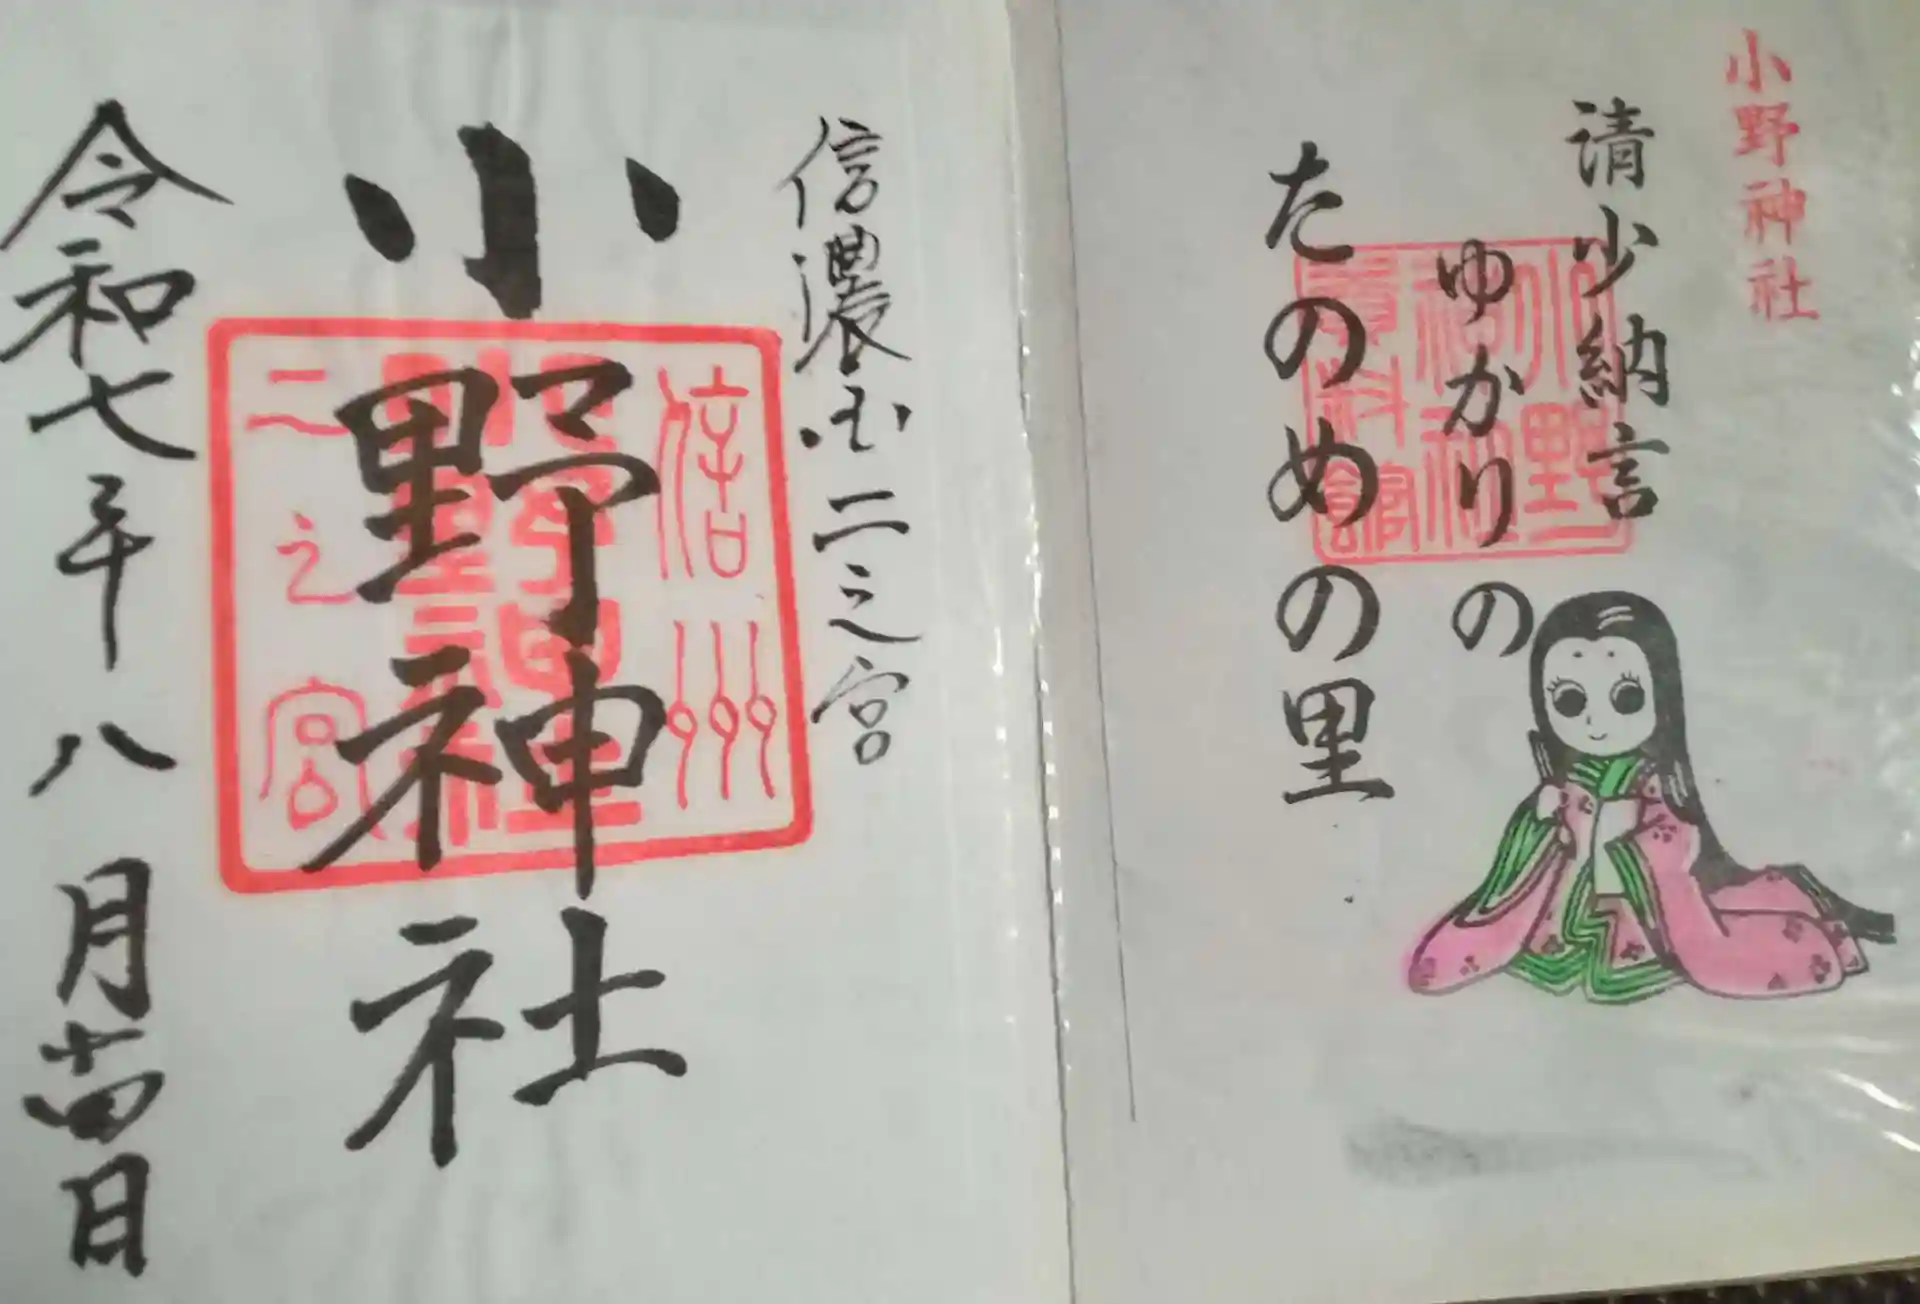 小野神社
清少納言
ゆかりの
たのめの里
小野
神社
資料館
信濃国二之宮
小野神社
信州
二之宮
令和七年八月十四日